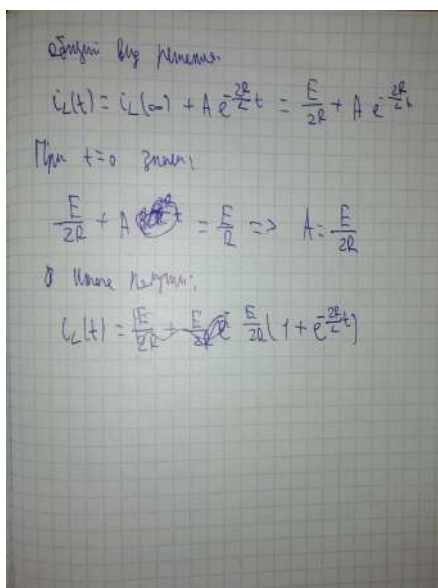 Общий вид решения.
i_L(t) = i_L(∞) + A e^{-\frac{2R}{L}t} = \frac{E}{2R} + A e^{-\frac{2R}{L}t}
При t=0 знаем:
\frac{E}{2R} + A = \frac{E}{R} => A = \frac{E}{2R}
В итоге получим:
i_L(t) = \frac{E}{2R}(1 + e^{-\frac{2R}{L}t})